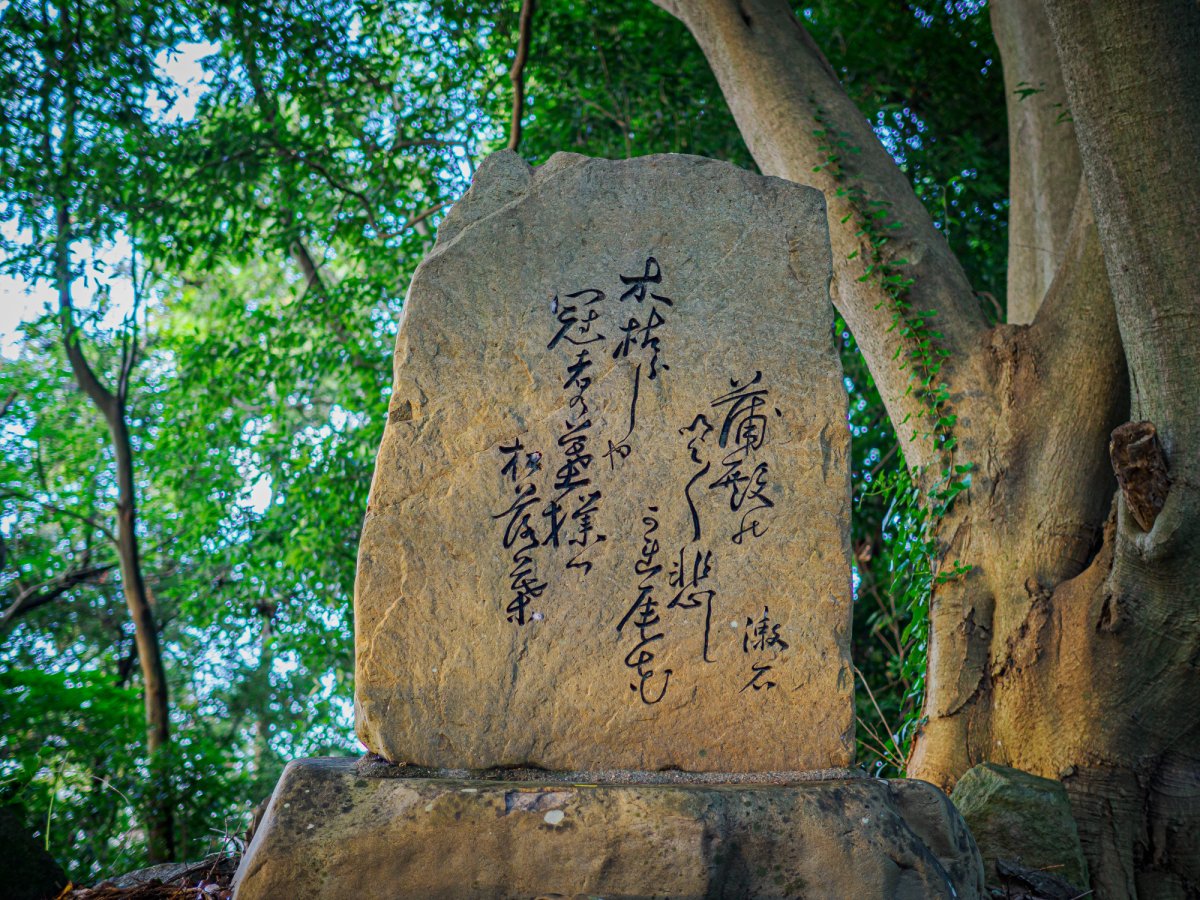 蒲殿の
漱石
いよ〱悲し
かれ尾花
木枯らしや
冠者の墓撲つ
松落葉